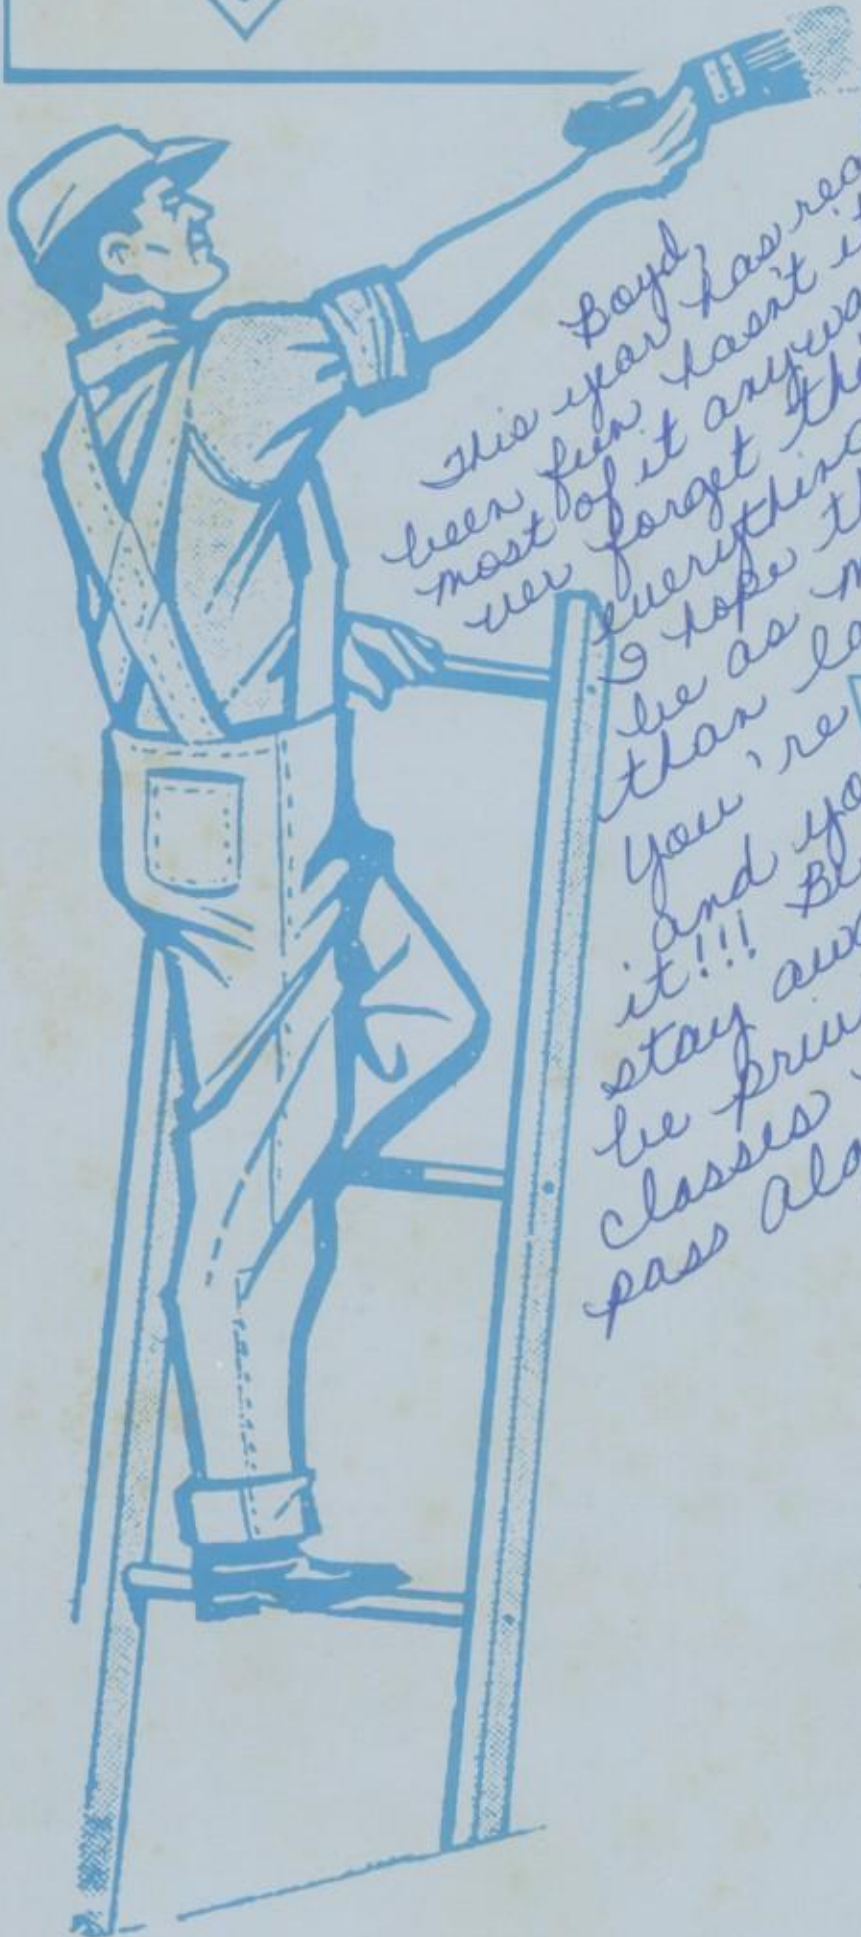 Boyd,
This year has rea
been fun hasn't i
most of it anywa
ver forget th
everything
I hope th
be as m
than la
You're
and yo
it!!! Bu
stay awa
be priv
classes
pass alo